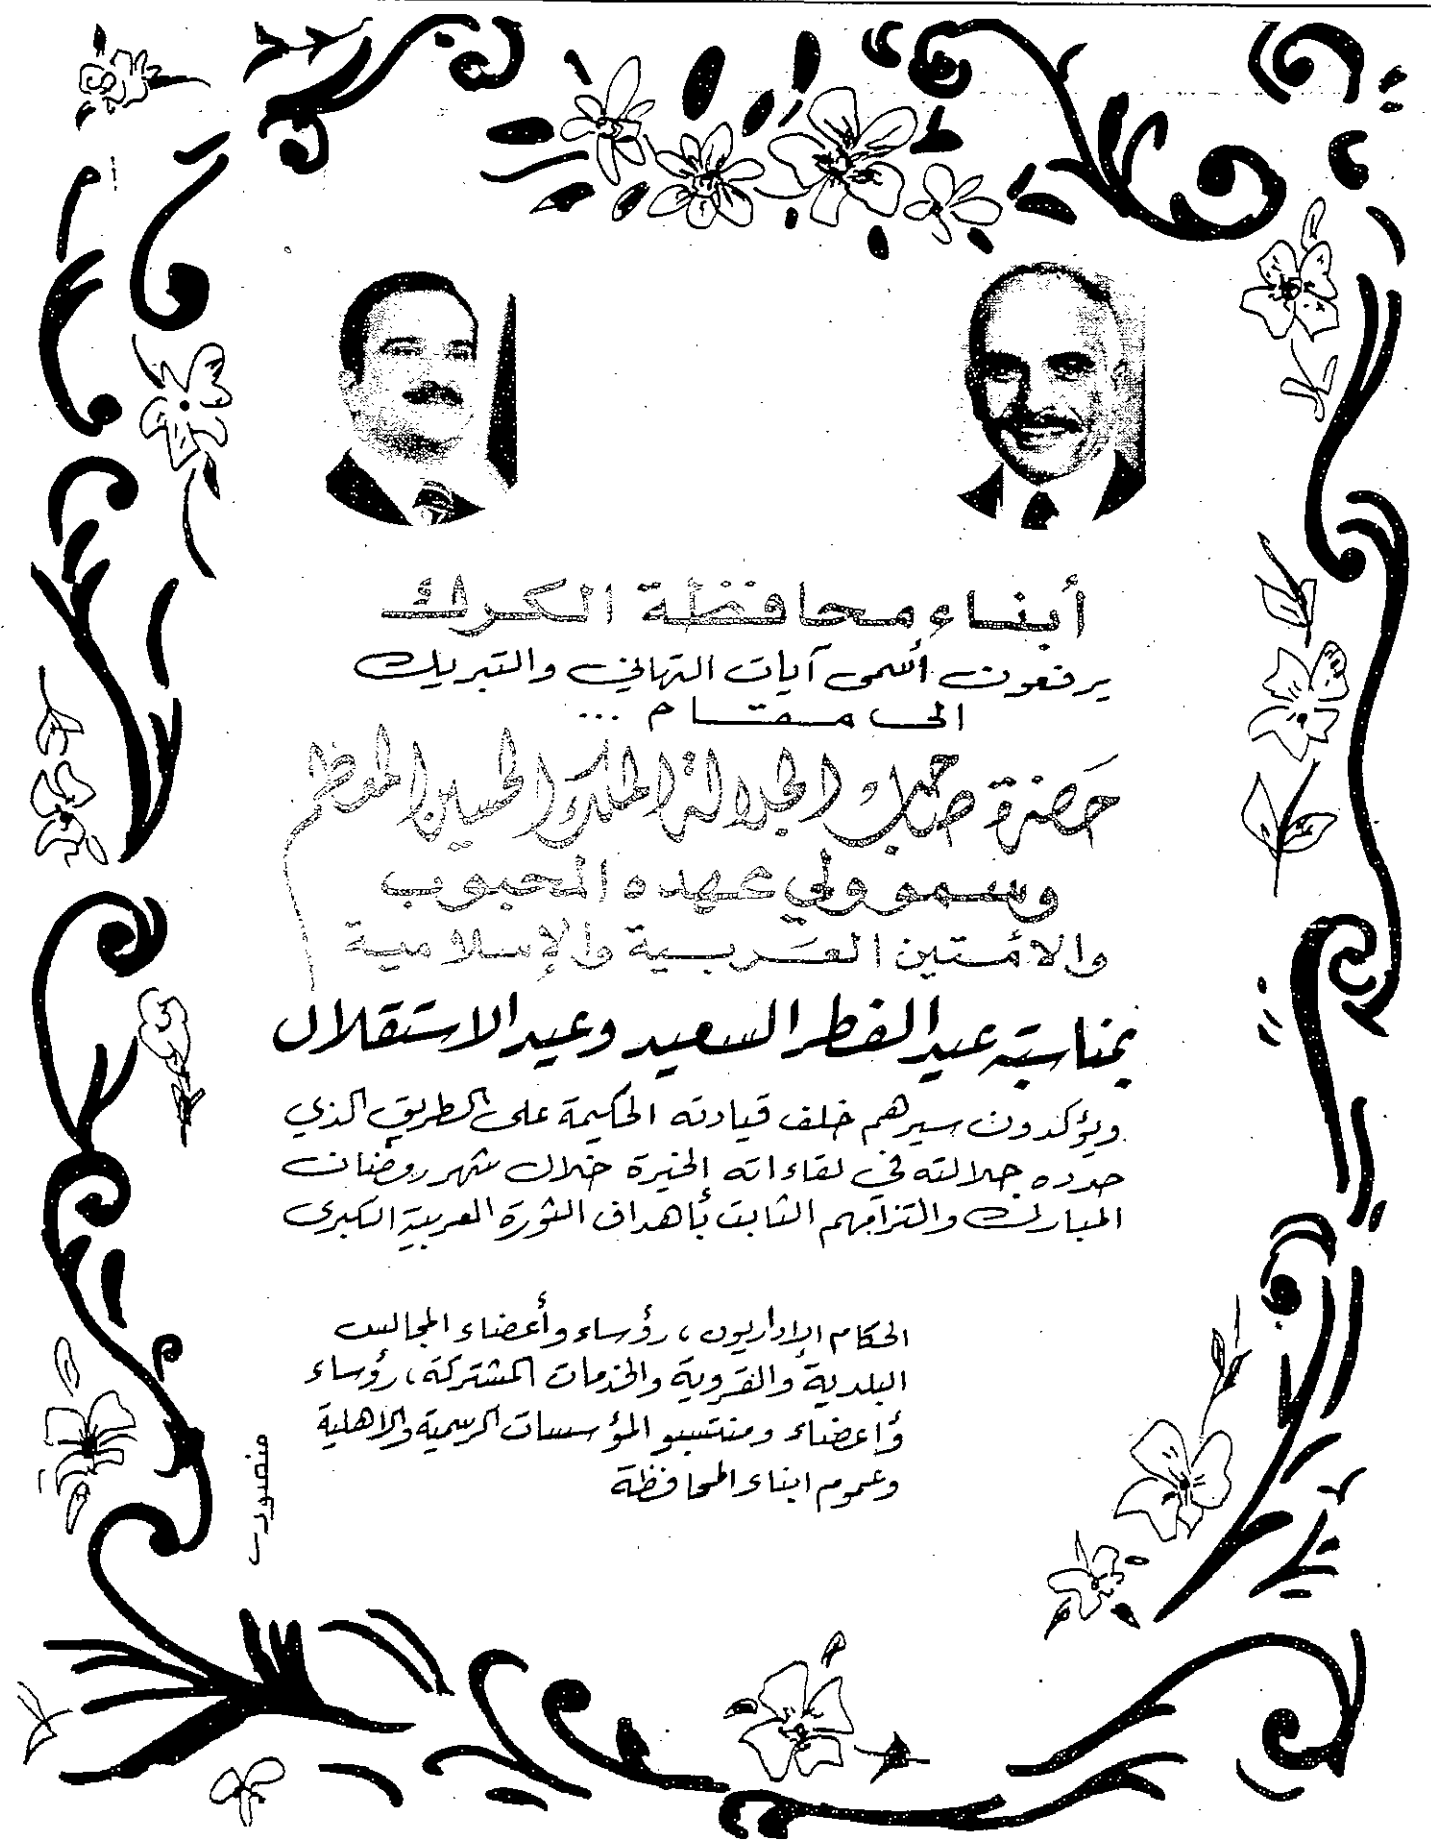 أبناء محافظة الكرك
يرفعون أسمى آيات التهاني والتبريك
الى مقام ...
حضرة صاحب الجلالة الملك الحسين المعظم
وسمو ولي عهده المحبوب
والأمتين العربية والإسلامية
بمناسبة عيد الفطر السعيد وعيد الاستقلال
ويؤكدون سيرهم خلف قيادته الحكيمة على الطريق الذي
حدده جلالته في لقاءاته الخيرة خلال شهر رمضان
المبارك والتزامهم الثابت بأهداف الثورة العربية الكبرى
الحكام الإداريون، رؤساء وأعضاء المجالس
البلدية والقروية والخدمات المشتركة، رؤساء
وأعضاء ومنتسبو المؤسسات الرسمية والاهلية
وعموم ابناء المحافظة